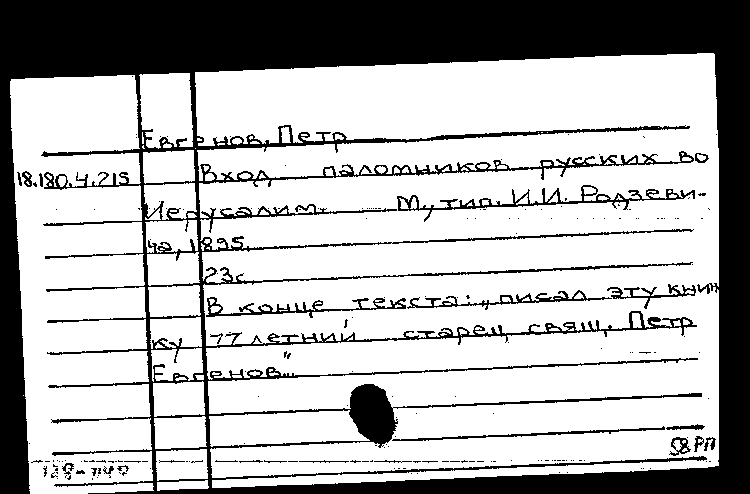 Евгенов, Петр
18.180.4.215 Вход паломников русских во
Иерусалим. М., тип. И.И. Родзеви-
ча, 1895.
23с.
В конце текста: „писал эту книж
ку 77 летний старец свящ. Петр
Евгенов".
58РП